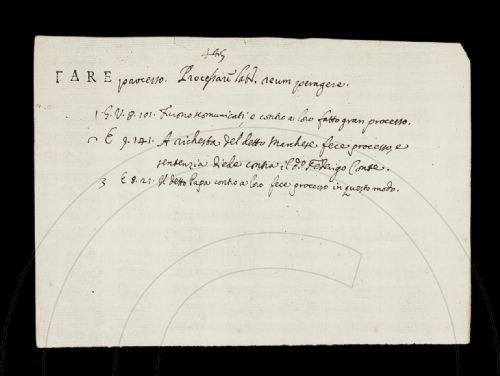 445
FARE processo. Processare Lat. reum peragere.
1 G. V. 8. 101. Furono scomunicati, e contro a loro fatto gran processo.
E 9. 141. A richesta del detto Marchese fece processo, e
sentenzia diede contra il dº Federigo Conte.
3 E 8. 21. Il detto Papa contro a loro fece processo in questo modo.